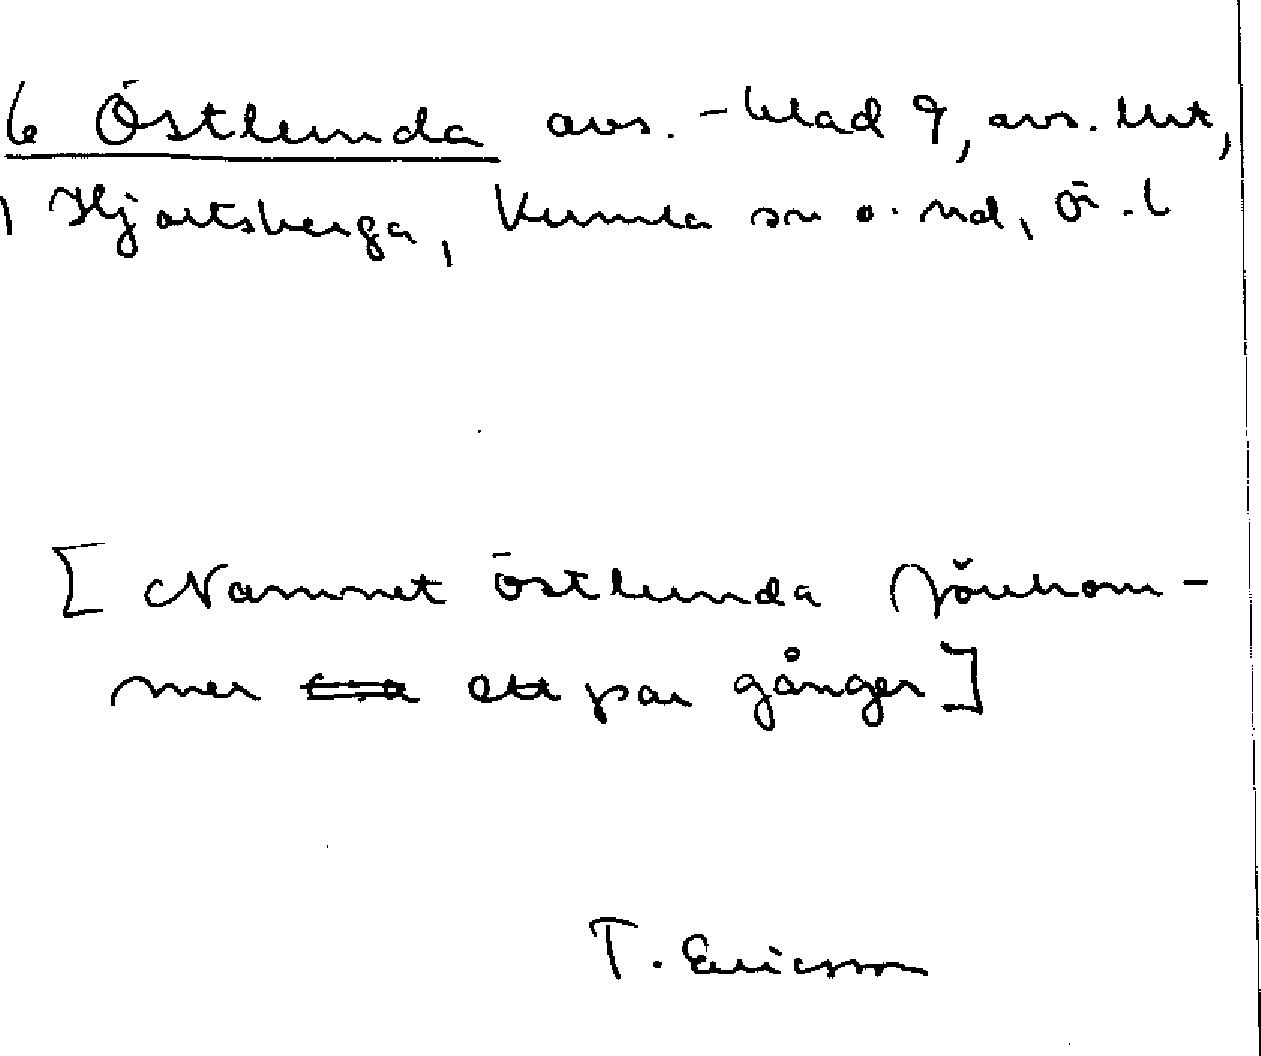 6 Östlunda avs. - blad 9, avs. utk,
1 Hjortsberga, Kumla sn o. hd, Ö.l
[Namnet Östlunda förekom-
mer ett par gånger]
T. Ericsson